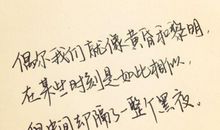 偶尔我们就像黄昏和黎明，
在某些时刻是如此相似，
但中间却隔了一整个黑夜。